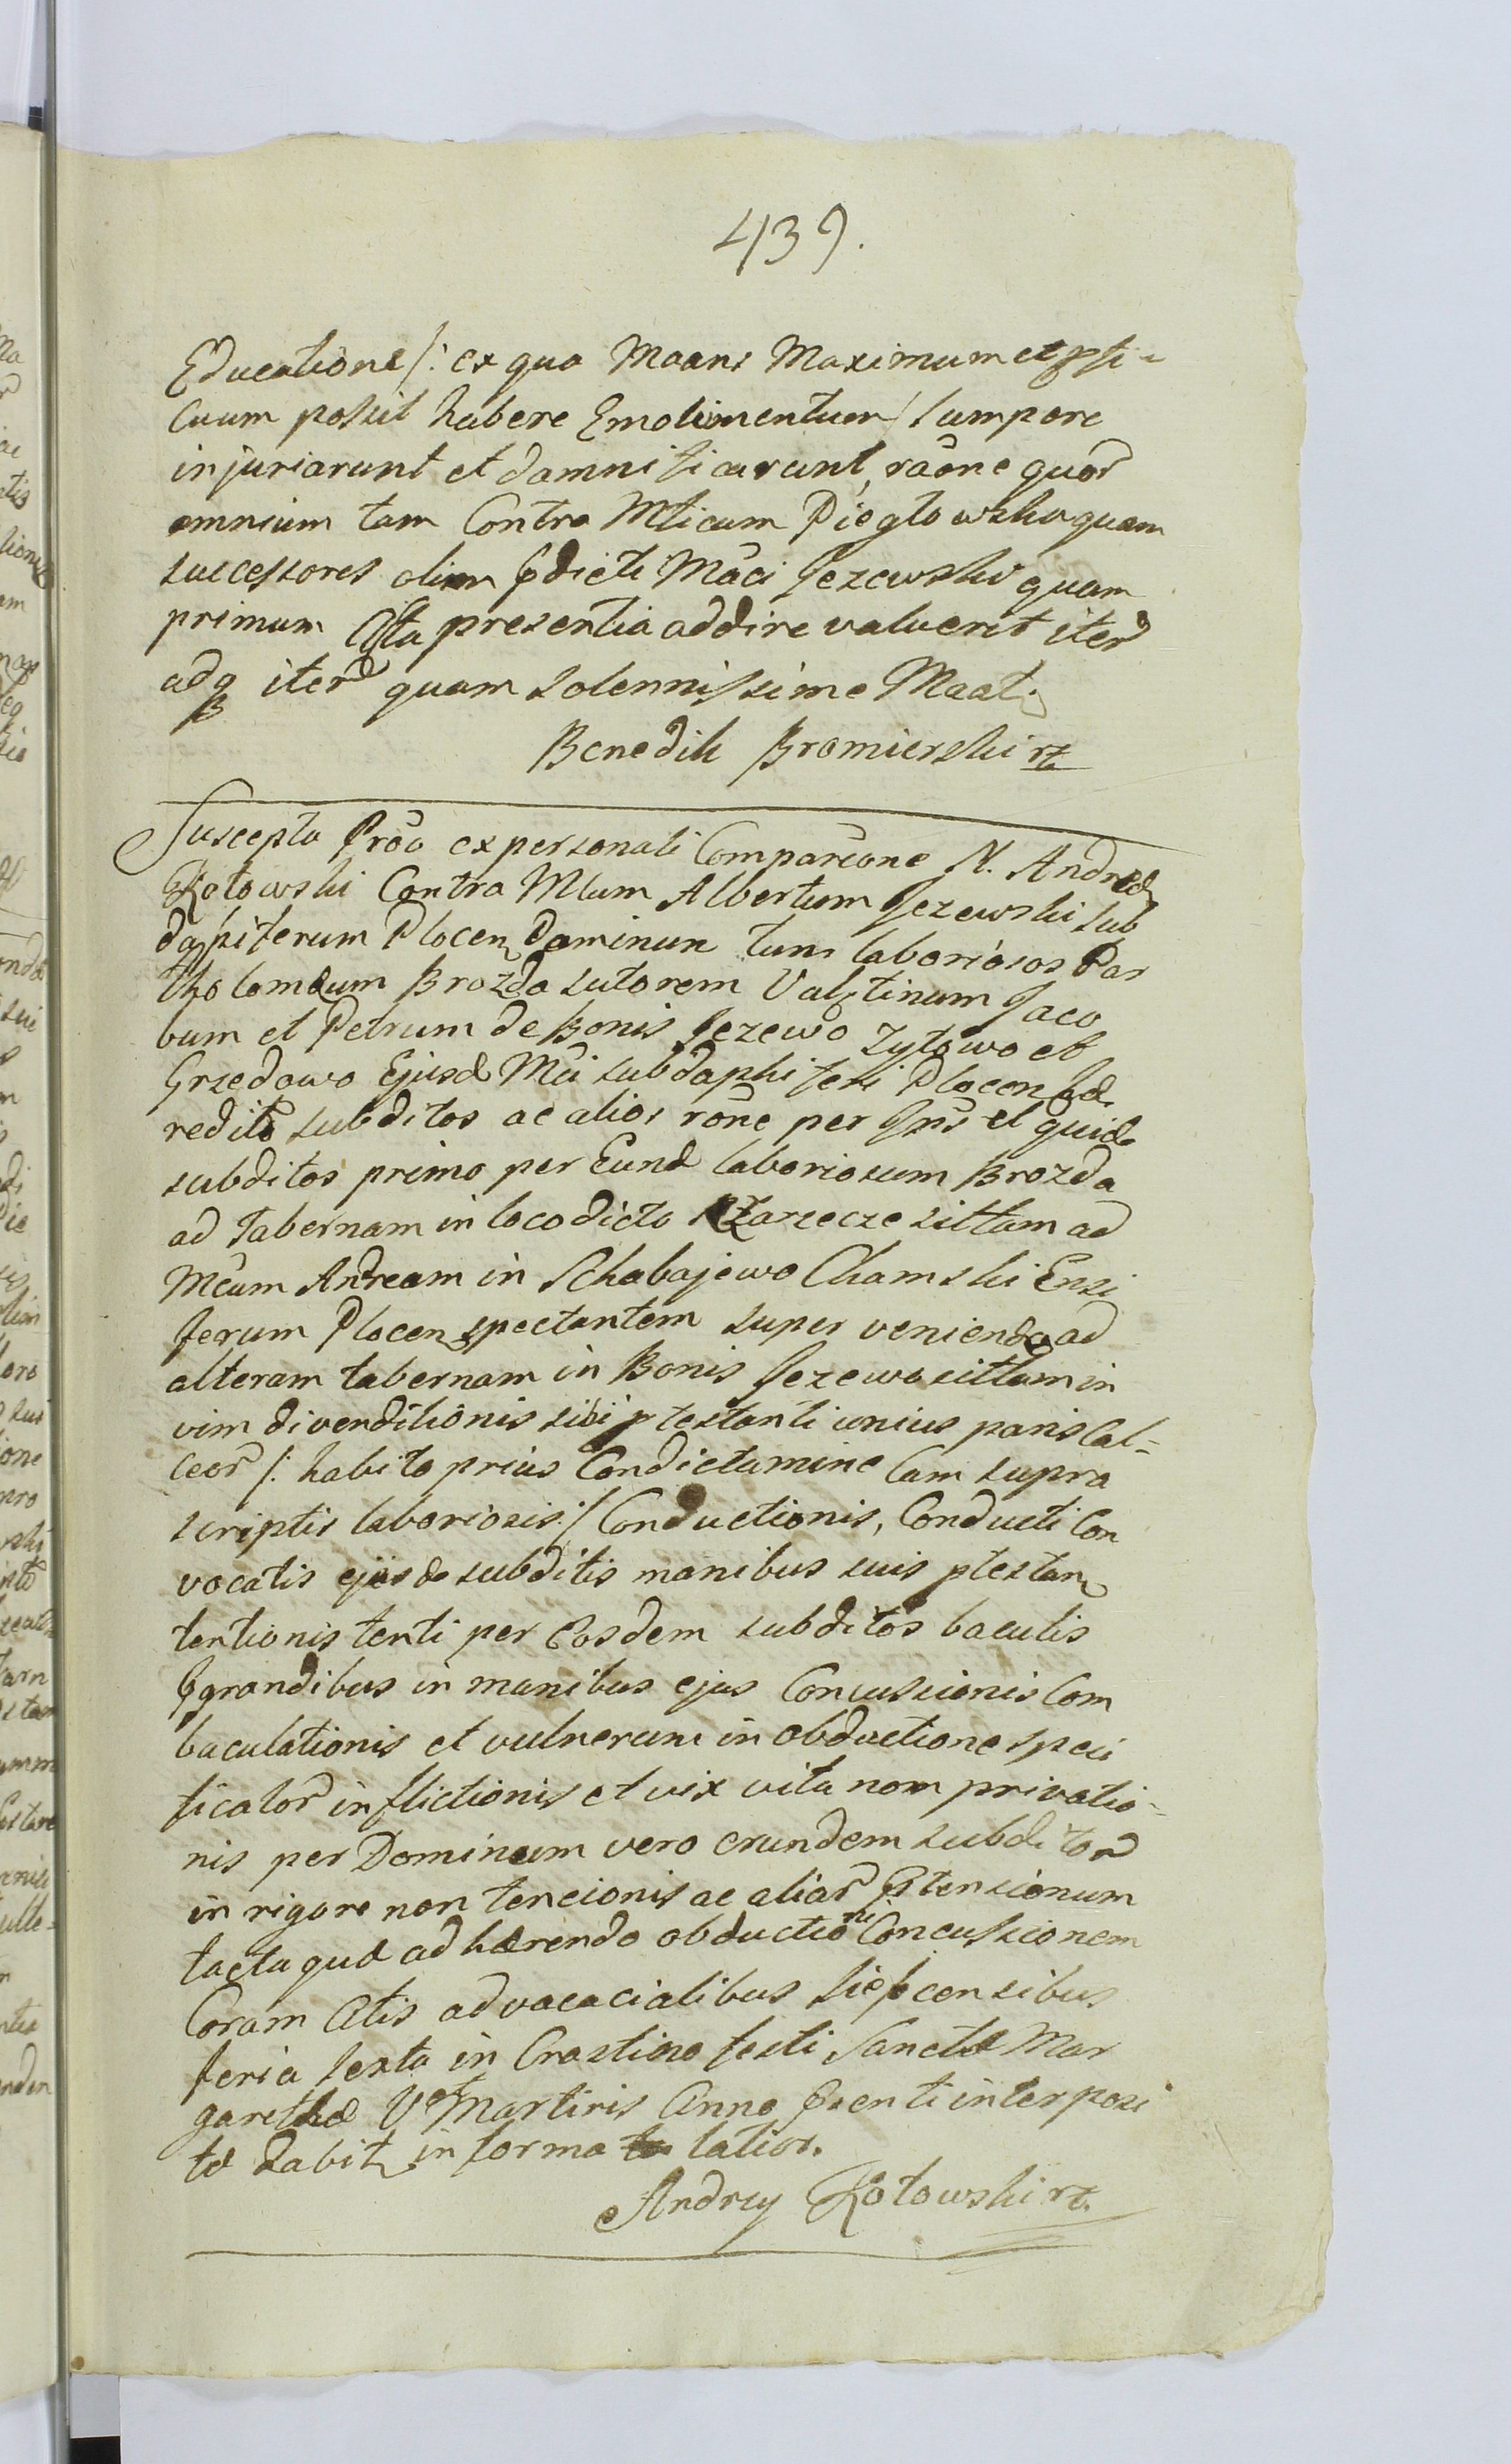 439.
Educatione /: ex quo Maans Maximum et pfi-
cuum possit habere Emolimentum / tempore
injuriarunt et damnificarunt, raõne quor
omnium tam Contra Mticum Pięgłowski quam
successores olim pdicti Mãci Jezewski quam
primum Acta presentia addire valuerit iter
adq iter quam solennissime Maat
Benedik Bromierski rz
Suscepta Proã ex personali Comparẽone N. Andreæ
Kotowski Contra Mlum Albertum Jezewski Sub
dapiferum Plocen Dominum tum laboriosos Bar
tholomæum Brozda sutorem Valetinum Jaco
bum et Petrum de Bonis Jezewo Zytowo et
Grzedowo Ejusd Mci subdaphiferi Plocen hæ
redito subditos ac alios rõne per Ipũs et quid
subditos primo per Eund laboriosum Brozda
ad Tabernam in loco dicto Zarzecze sittam ad
Mcum Andream in Schabajewo Chamski Ensi
ferum Plocen spectantem super veniendo ad
alteram tabernam in Bonis Jezewo sittam in
vim divenditionis sibi ptestanti unius paris Cal-
ceor /: habito prius Condictamine Cam supra
scriptis laboriosis :/ Conductionis, Conducti Con
vocatis ejusde subditis manibus suis ptestan
tentionis tenti per Eosdem subditos baculis
pgrandibus in manibus ejus Concussionis Com
baculationis et vulnerum in obductione speci
ficator inflictionis et vix vita non privatio-
nis per Dominum vero erundem subditor
in rigore non tencionis ac aliar ptensionum
tactaque adhærendo obductioni Concussionem
Coram Actis advocacialibus Siepcensibus
feria sexta in Crastino festi Sanctæ Mar
garethæ V et Martiris Anno psenti interposi
tæ Dabit in forma latior.
Andrzy Kotowski rz.